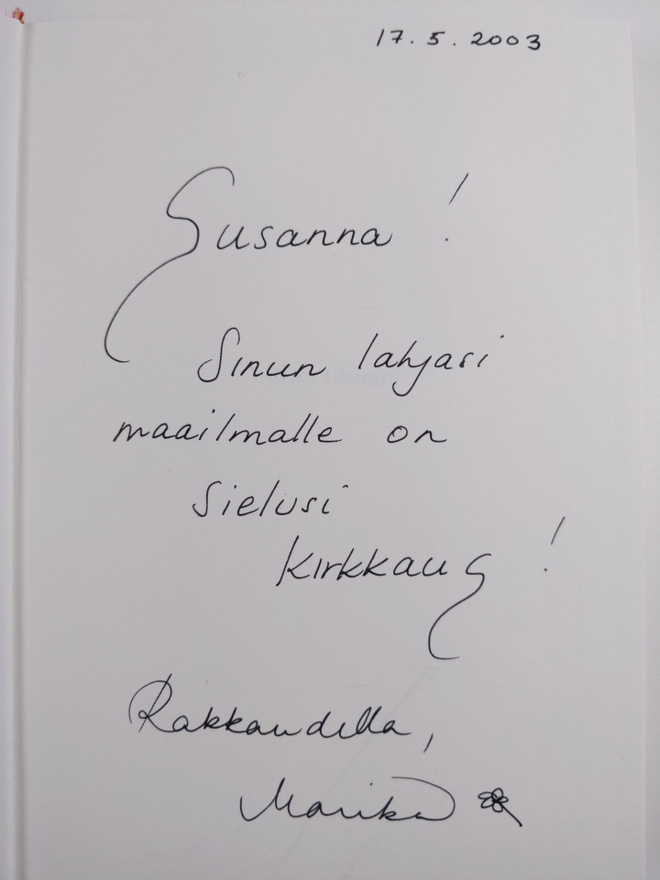 17.5.2003
Susanna!
Sinun lahjasi
maailmalle on
Sielusi
Kirkkaus!
Rakkaudella,
Marika